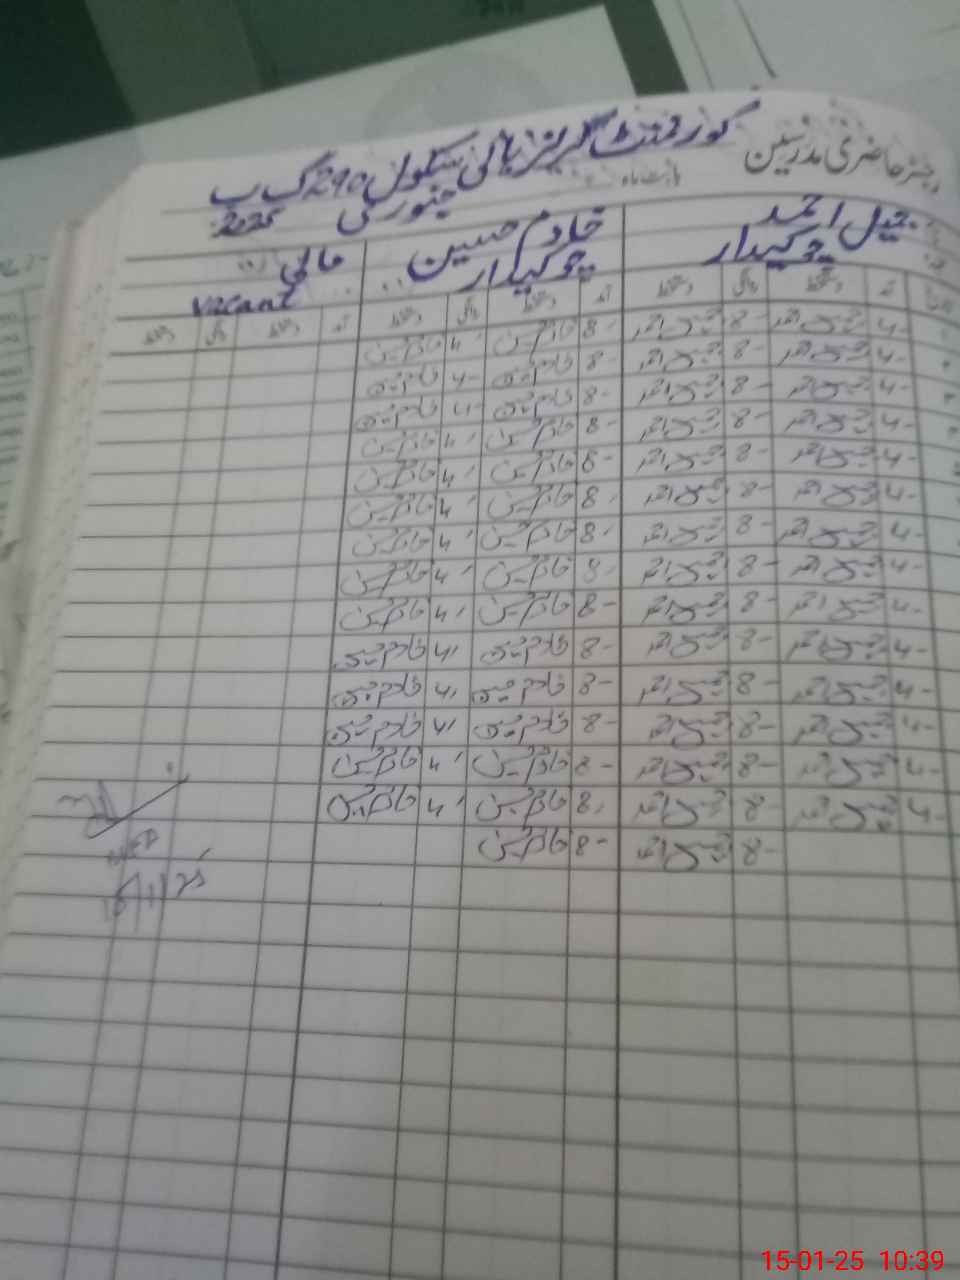 رجسٹر حاضری مدرسین گورنمنٹ گرلز ہائی سکول 290 گ ب
بابت ماہ جنوری 2025
جمیل احمد خادم حسین مالی
چوکیدار چوکیدار Vacant
آمد دستخط دستخط آمد دستخط دستخط آمد دستخط دستخط
4- جمیل احمد 8- جمیل احمد 8- خادم حسین 4- خادم حسین
4- جمیل احمد 8- جمیل احمد 8- خادم حسین 4- خادم حسین
4- جمیل احمد 8- جمیل احمد 8- خادم حسین 4- خادم حسین
4- جمیل احمد 8- جمیل احمد 8- خادم حسین 4- خادم حسین
4- جمیل احمد 8- جمیل احمد 8- خادم حسین 4- خادم حسین
4- جمیل احمد 8- جمیل احمد 8- خادم حسین 4- خادم حسین
4- جمیل احمد 8- جمیل احمد 8- خادم حسین 4- خادم حسین
4- جمیل احمد 8- جمیل احمد 8- خادم حسین 4- خادم حسین
4- جمیل احمد 8- جمیل احمد 8- خادم حسین 4- خادم حسین
4- جمیل احمد 8- جمیل احمد 8- خادم حسین 4- خادم حسین
4- جمیل احمد 8- جمیل احمد 8- خادم حسین 4- خادم حسین
4- جمیل احمد 8- جمیل احمد 8- خادم حسین 4- خادم حسین
4- جمیل احمد 8- جمیل احمد 8- خادم حسین 4- خادم حسین
4- جمیل احمد 8- جمیل احمد 8- خادم حسین 4- خادم حسین
8- جمیل احمد 8- خادم حسین
15/1/25
15-01-25 10:39